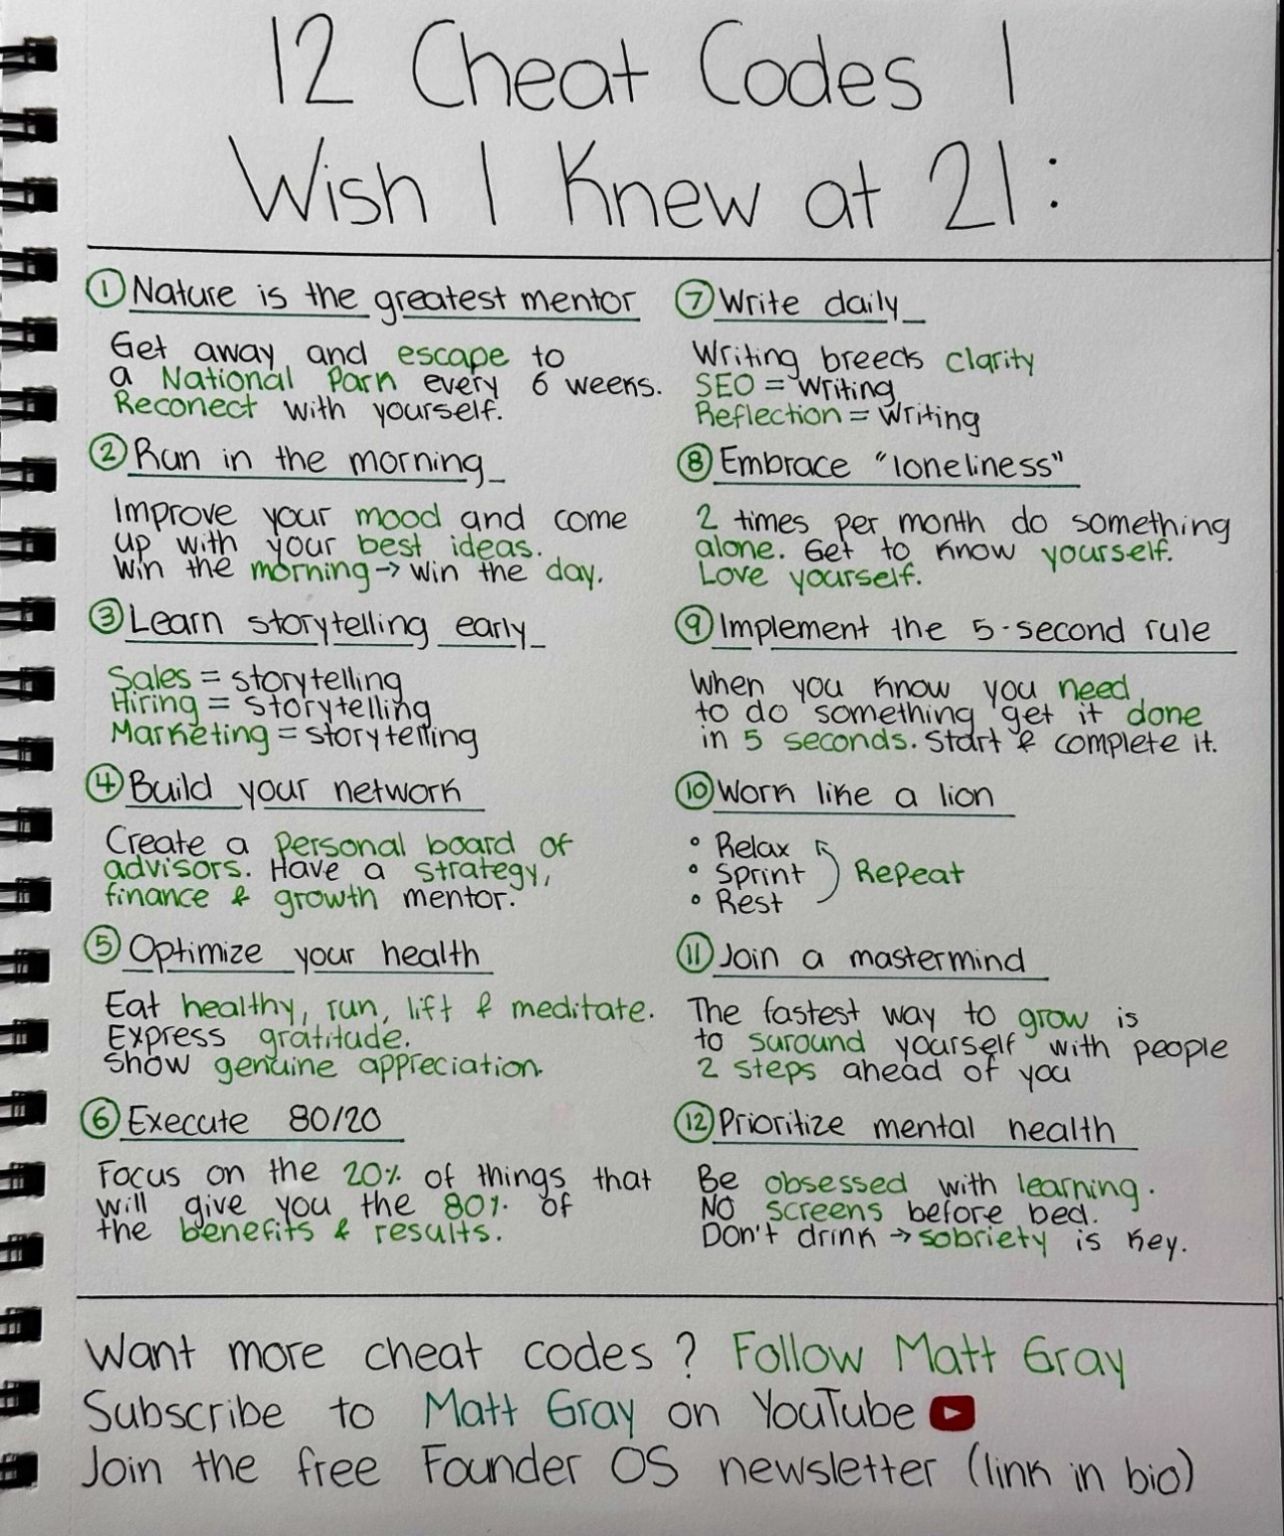 12 Cheat Codes I
Wish I Knew at 21:
① Nature is the greatest mentor
Get away and escape to
a National Park every 6 weeks.
Reconect with yourself.
② Run in the morning_
Improve your mood and come
up with your best ideas.
Win the morning → win the day.
③ Learn storytelling early_
Sales = storytelling
Hiring = storytelling
Marketing = storytelling
④ Build your network
Create a personal board of
advisors. Have a strategy,
finance & growth mentor.
⑤ Optimize your health
Eat healthy, run, lift & meditate.
Express gratitude.
Show genuine appreciation.
⑥ Execute 80/20
Focus on the 20% of things that
will give you the 80% of
the benefits & results.
⑦ Write daily_
Writing breeds clarity
SEO = Writing
Reflection = Writing
⑧ Embrace "loneliness"
2 times per month do something
alone. Get to know yourself.
Love yourself.
⑨ Implement the 5-second rule
When you know you need
to do something get it done
in 5 seconds. Start & complete it.
⑩ Work like a lion
• Relax
• Sprint
• Rest
Repeat
⑪ Join a mastermind
The fastest way to grow is
to suround yourself with people
2 steps ahead of you
⑫ Prioritize mental health
Be obsessed with learning.
NO screens before bed.
Don't drink → sobriety is key.
Want more cheat codes? Follow Matt Gray
Subscribe to Matt Gray on YouTube
Join the free Founder OS newsletter (link in bio)